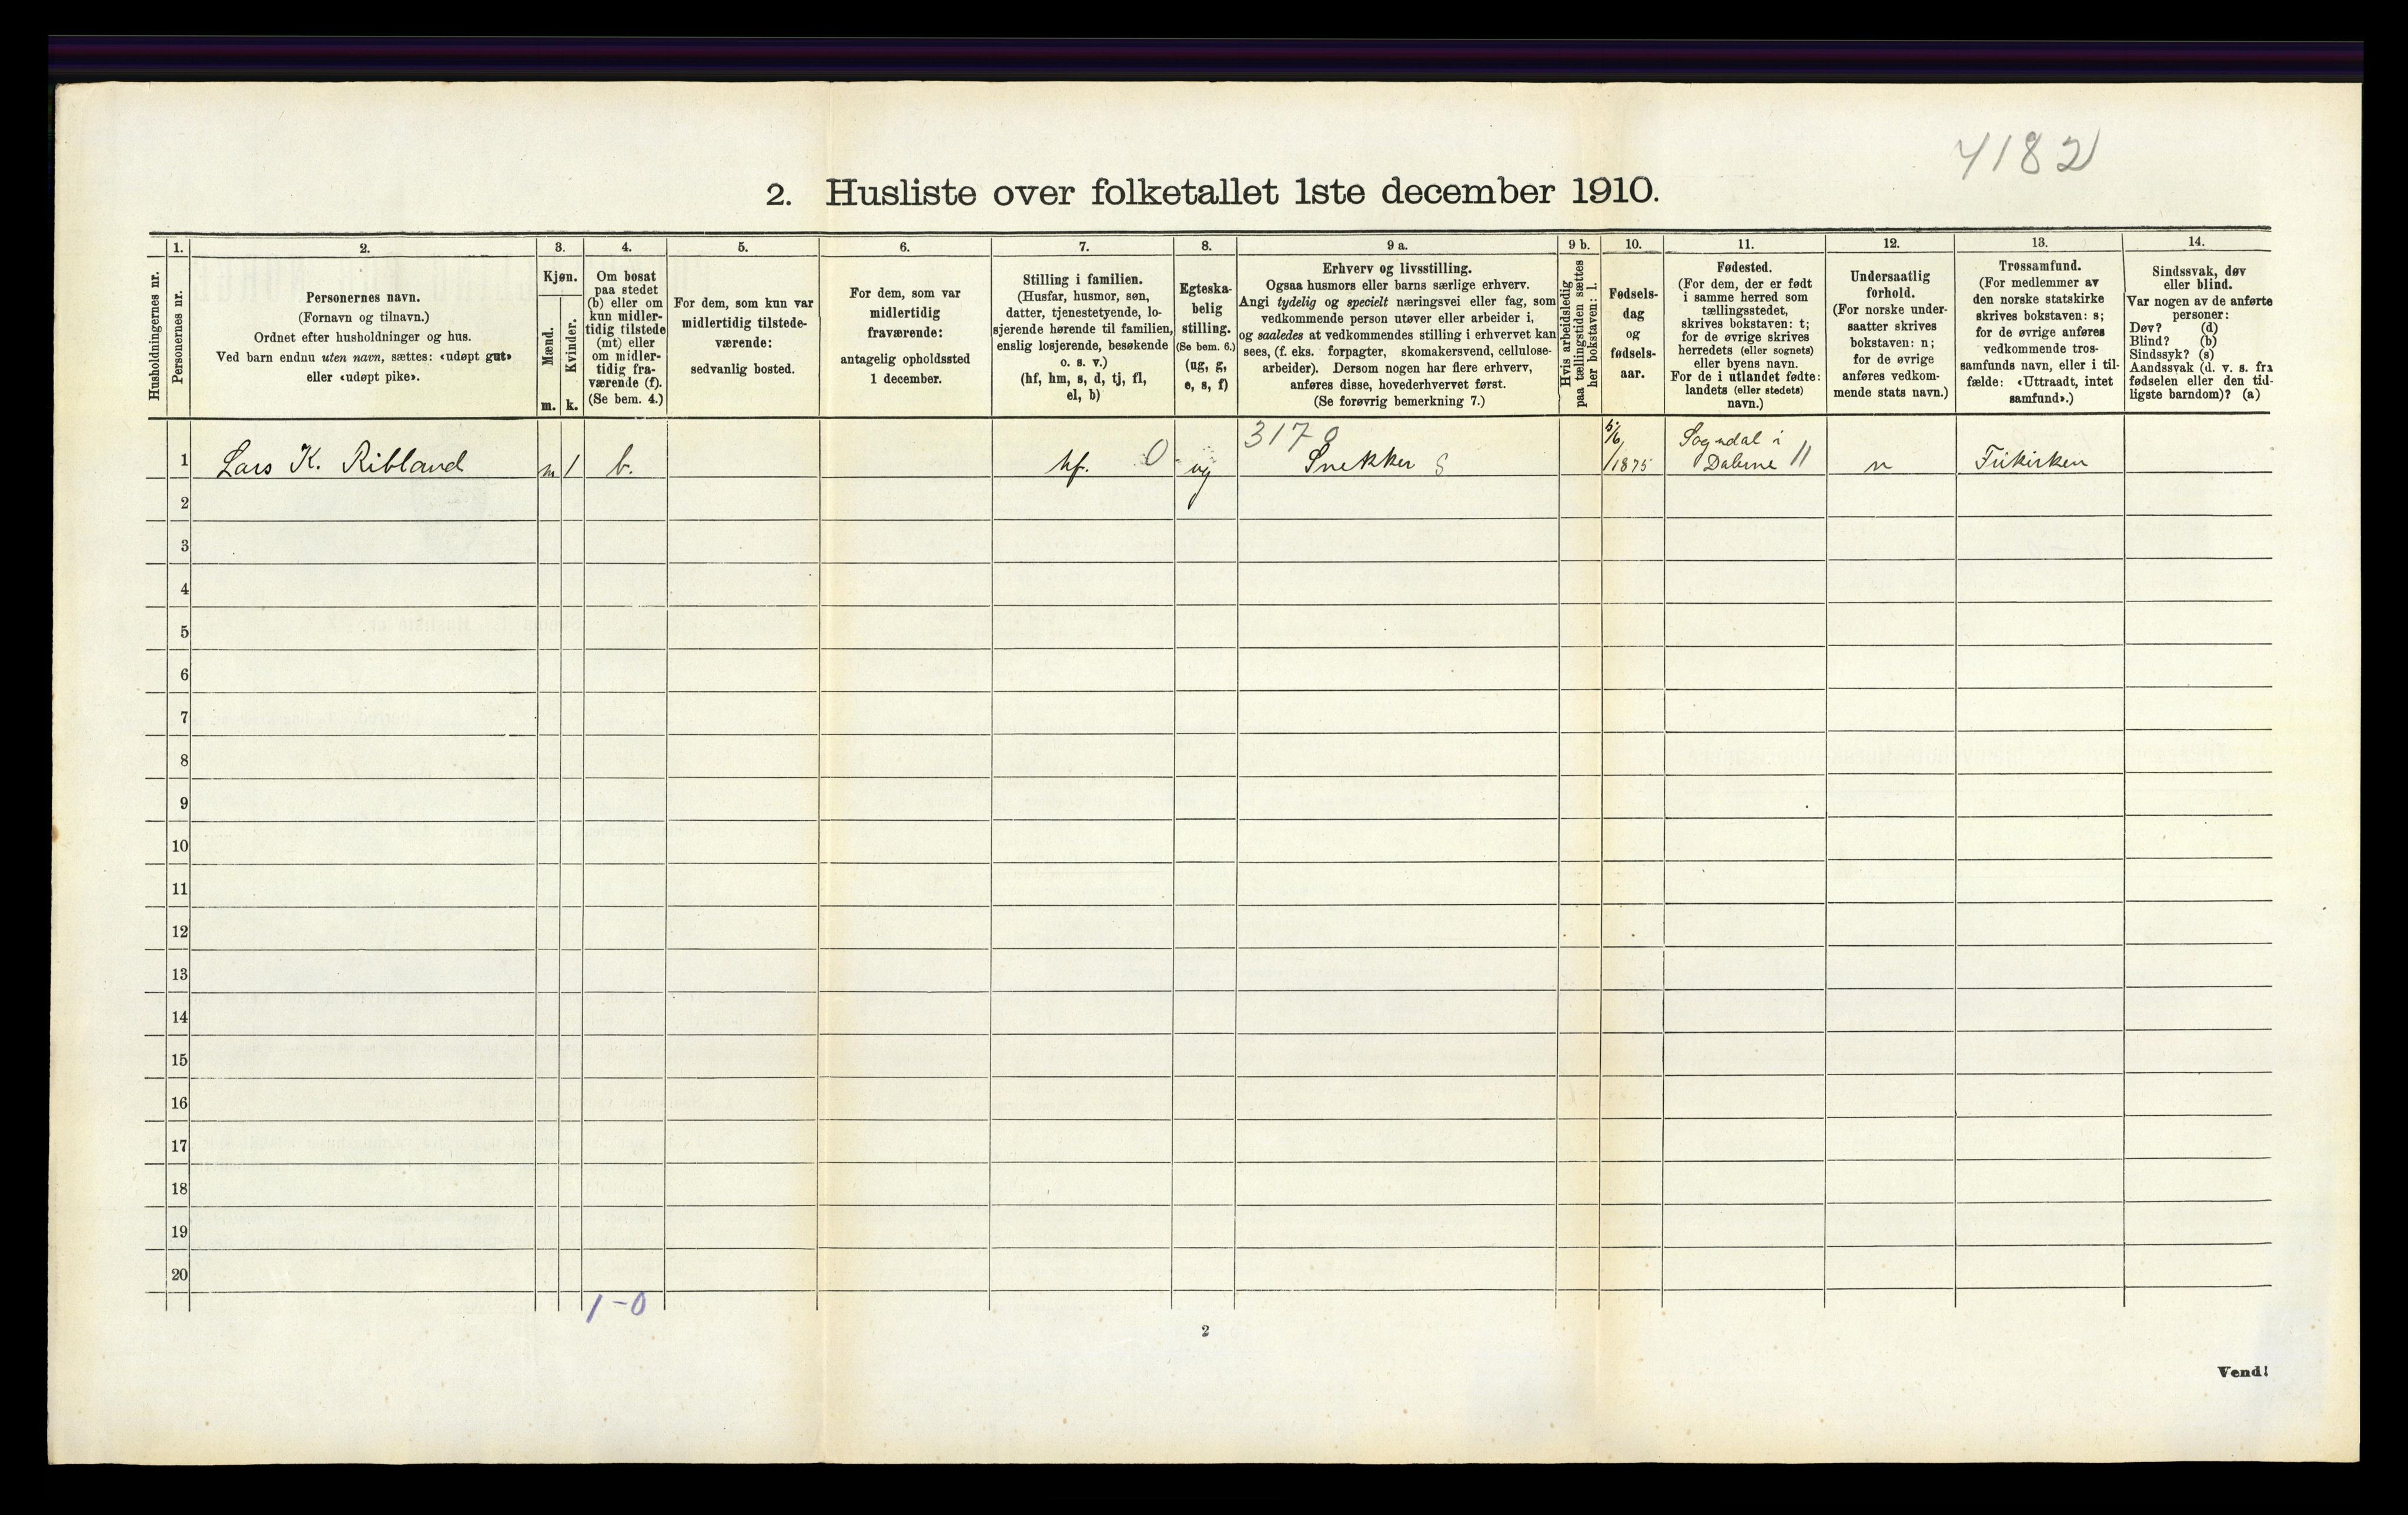 4182
2. Husliste over folketallet 1ste december 1910.
Husholdningernes nr.
1.
Personernes nr.
2.
Personernes navn.
(Fornavn og tilnavn.)
Ordnet efter husholdninger og hus.
Ved barn endnu uten navn, sættes: «udøpt gut»
eller «udøpt pike».
3.
Kjøn.
Mænd.
m.
Kvinder.
k.
4.
Om bosat
paa stedet
(b) eller om
kun midler-
tidig tilstede
(mt) eller
om midler-
tidig fra-
værende (f).
(Se bem. 4.)
5.
For dem, som kun var
midlertidig tilstede-
værende:
sedvanlig bosted.
6.
For dem, som var
midlertidig
fraværende:
antagelig opholdssted
1 december.
7.
Stilling i familien.
(Husfar, husmor, søn,
datter, tjenestetyende, lo-
sjerende hørende til familien,
enslig losjerende, besøkende
o. s. v.)
(hf, hm, s, d, tj, fl,
el, b)
8.
Egteska-
belig
stilling.
(Se bem. 6.)
(ug, g,
e, s, f)
9 a.
Erhverv og livsstilling.
Ogsaa husmors eller barns særlige erhverv.
Angi tydelig og specielt næringsvei eller fag, som
vedkommende person utøver eller arbeider i,
og saaledes at vedkommendes stilling i erhvervet kan
sees, (f. eks. forpagter, skomakersvend, cellulose-
arbeider). Dersom nogen har flere erhverv,
anføres disse, hovederhvervet først.
(Se forøvrig bemerkning 7.)
9 b.
Hvis arbeidsledig
paa tællingstiden sættes
her bokstaven: l.
10.
Fødsels-
dag
og
fødsels-
aar.
11.
Fødested.
(For dem, der er født
i samme herred som
tællingsstedet,
skrives bokstaven: t;
for de øvrige skrives
herredets (eller sognets)
eller byens navn.
For de i utlandet fødte:
landets (eller stedets)
navn.)
12.
Undersaatlig
forhold.
(For norske under-
saatter skrives
bokstaven: n;
for de øvrige
anføres vedkom-
mende stats navn.)
13.
Trossamfund.
(For medlemmer av
den norske statskirke
skrives bokstaven: s;
for de øvrige anføres
vedkommende tros-
samfunds navn, eller i til-
fælde: «Uttraadt, intet
samfund».)
14.
Sindssvak, døv
eller blind.
Var nogen av de anførte
personer:
Døv? (d)
Blind? (b)
Sindssyk? (s)
Aandssvak (d. v. s. fra
fødselen eller den tid-
ligste barndom)? (a)
3170 5/6 Sogndal i
1 Lars K. Ribland m 1 b. hf. 0 ug Snekker S 1875 Dalerne 11 n Frikirken
2
3
4
5
6
7
8
9
10
11
12
13
14
15
16
17
18
19
20
1-0
2
Vend!